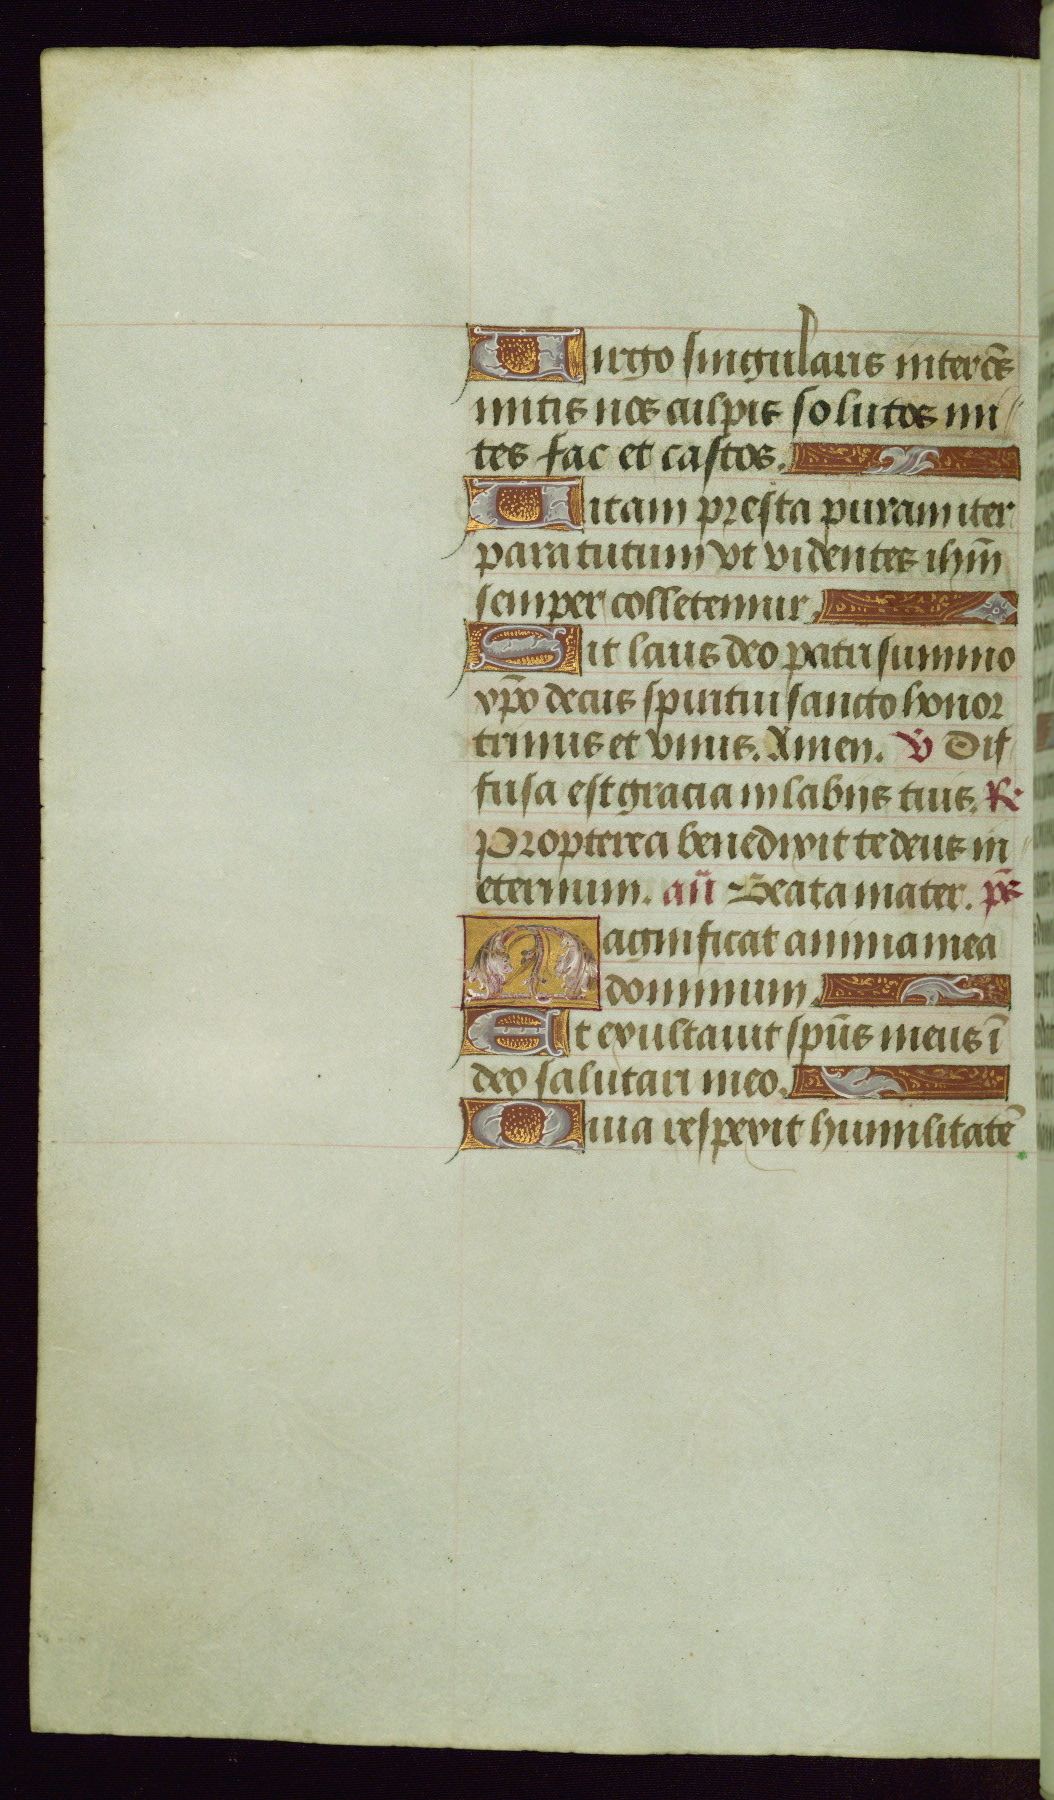 Virgo singularis inter oēs
mitis nos culpis solutos mi
tes fac et castos.
Vitam presta puram iter
para tutum vt videntes ihm̄
semper colletemur.
Sit laus deo patri summo
xp̄o decus spiritui sancto honor
trinus et vnus. Amen. V̄ Dif
fusa est gracia in labijs tuis. R̄
Propterea benedixit te deus in
eternum. an̄ Beata mater. ps̄
Magnificat anima mea
dominum.
Et exultauit spūs meus ī
deo salutari meo.
Quia respexit humilitatē